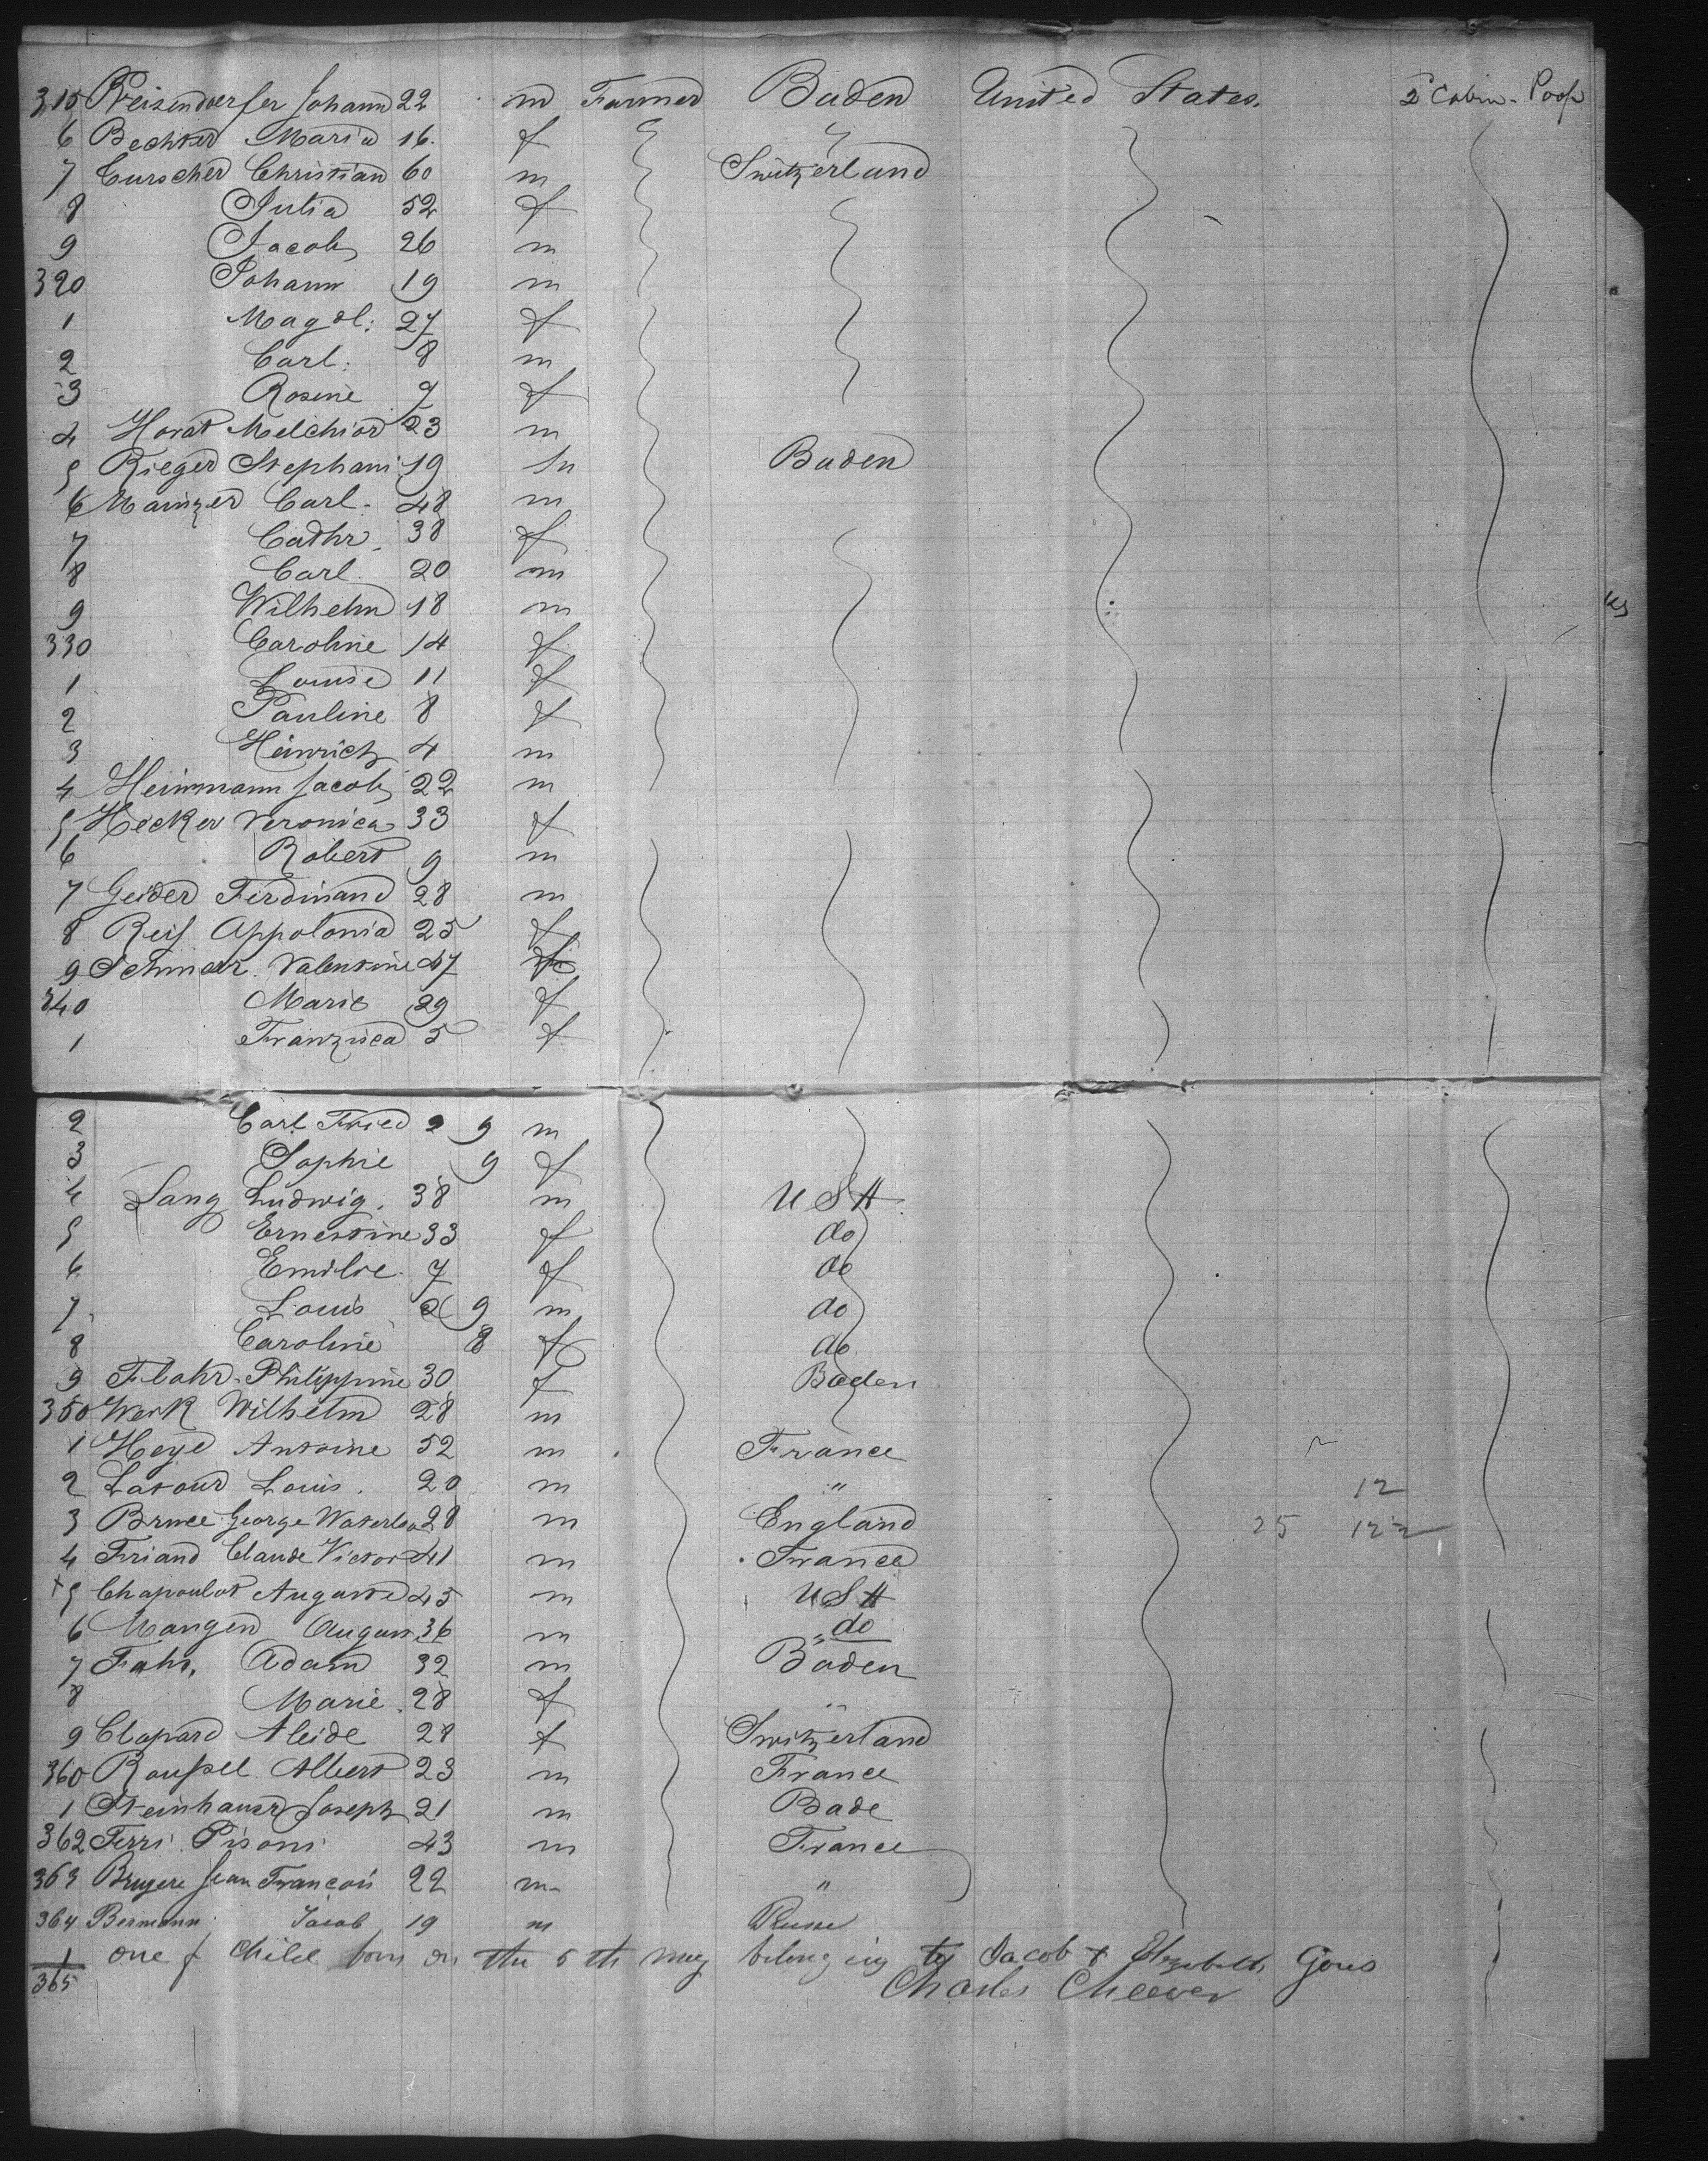 315 Preizendoerfer Johann 22 m Farmer Baden United States. 2d Cabin - Poop
6 Bechter Maria 16. f "
7 Curscher Christian 60 m Switzerland
8 Julia 52 f
9 Jacob 26 m
320 Johann 19 m
1 Magdl: 27 f
2 Carl: 8 m
3 Rosine 7 f
4 Horat Melchior 23 m
5 Rieger Stephani 19 m Baden
6 Mainzer Carl. 48 m
7 Cathr. 38 f
8 Carl. 20 m
9 Wilhelm 18 m
330 Caroline 14 f
1 Louise 11 f
2 Pauline 8 f
3 Heinrich 4 m
4 Heinmann Jacob 22 m
5 Hecker Veronica 33 f
6 Robert 9 m
7 Geider Ferdinand 28 m
8 Reis Appolonia 25 f
9 Schmar. Valentine 47
340 Marie 29 f
1 Franzisca 5 f
2 Carl Fried 2 9 m
3 Sophie 9 f
4 Lang Ludwig. 38 m USA
5 Ernestine 33 f do
6 Emilie. 7 f do
7 Louis 2 9 m do
8 Caroline 8 f do
9 Flohr. Philippine 30 f Baden
350 Werk Wilhelm 28 m
1 Heye Antoine 52 m France
2 Latour Louis. 20 m " 12
3 Bruce George Waterloo 28 m England 25 12 2
4 Friand Claude Victor 41 m France
+5 Chapoulot Auguste 45 m USA
6 Mangen August 36 m do
7 Fahr, Adam 32 m " Baden
8 Marie. 28 f "
9 Clapard Aleide 28 f Switzerland
360 Roussel Albert 23 m France
1 Steinhauer Joseph 21 m Bade
362 Ferri Pisani 43 m France
363 Bruyere Jean Francois 22 m "
364 Bermann Jacob 19 m Russe
1 one f Child born on the 5 th May belonging to Jacob & Elizabeth Gous
365 Charles Cheever